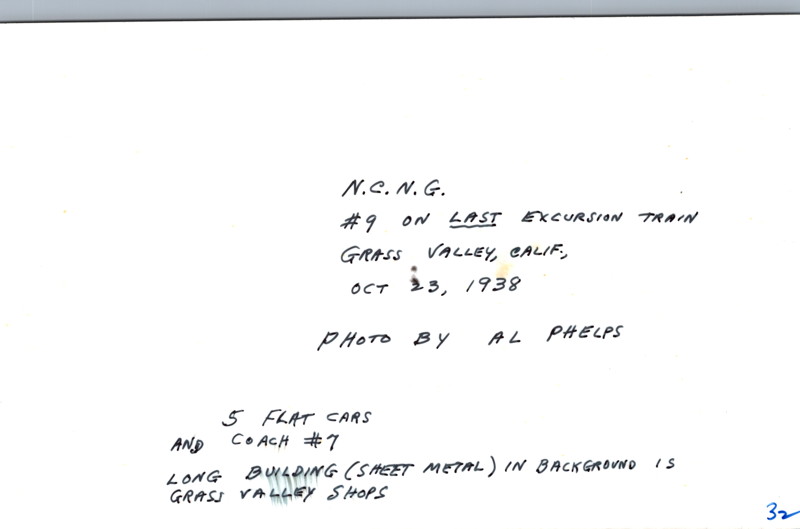 N.C.N.G.
#9 ON LAST EXCURSION TRAIN
GRASS VALLEY, CALIF.,
OCT 23, 1938
PHOTO BY AL PHELPS
5 FLAT CARS
AND COACH #7
LONG BUILDING (SHEET METAL) IN BACKGROUND IS
GRASS VALLEY SHOPS
32